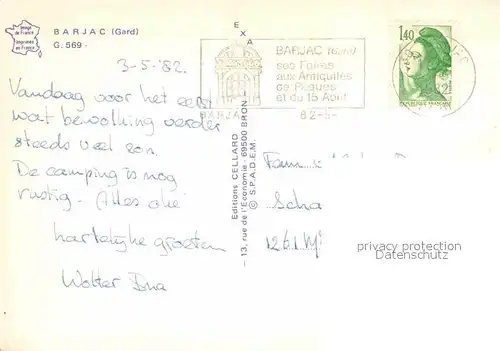 Image de France
Imprimée en France
BARJAC (Gard)
G. 569 -
EXA
3-5-'82.
Vandaag voor het eerst
wat bewolking verder
steeds veel zon.
De camping is nog
rustig. Alles
hartelijke groeten
Wolter
Editions CELLARD
- 13, rue de l'Économie - 69500 BRON -
© S.P.A.D.E.M.
BARJAC (Gard)
ses Foires
aux Antiquités
de Pâques
et du 15 Août
BARJAC
82-5-
1,40
Fam
Scha
1261
privacy protection
Datenschutz